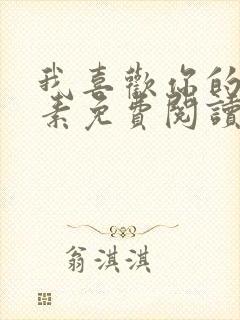 我喜歡你的
素免費閱讀
翁淇淇